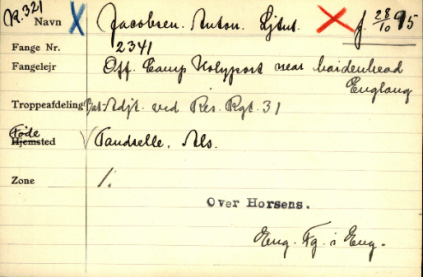 K. 321
Navn Jacobsen. Anton. Ljtnt. f. 28/10 95
Fange Nr. 2341
Fangelejr Off. Camp Holyport near Maidenhead
England
Troppeafdeling Adjt. ved Res. Rgt. 31
Føde
Hjemsted Tandselle, Als.
Zone 1.
Over Horsens.
Eng. Fg. i Eng.